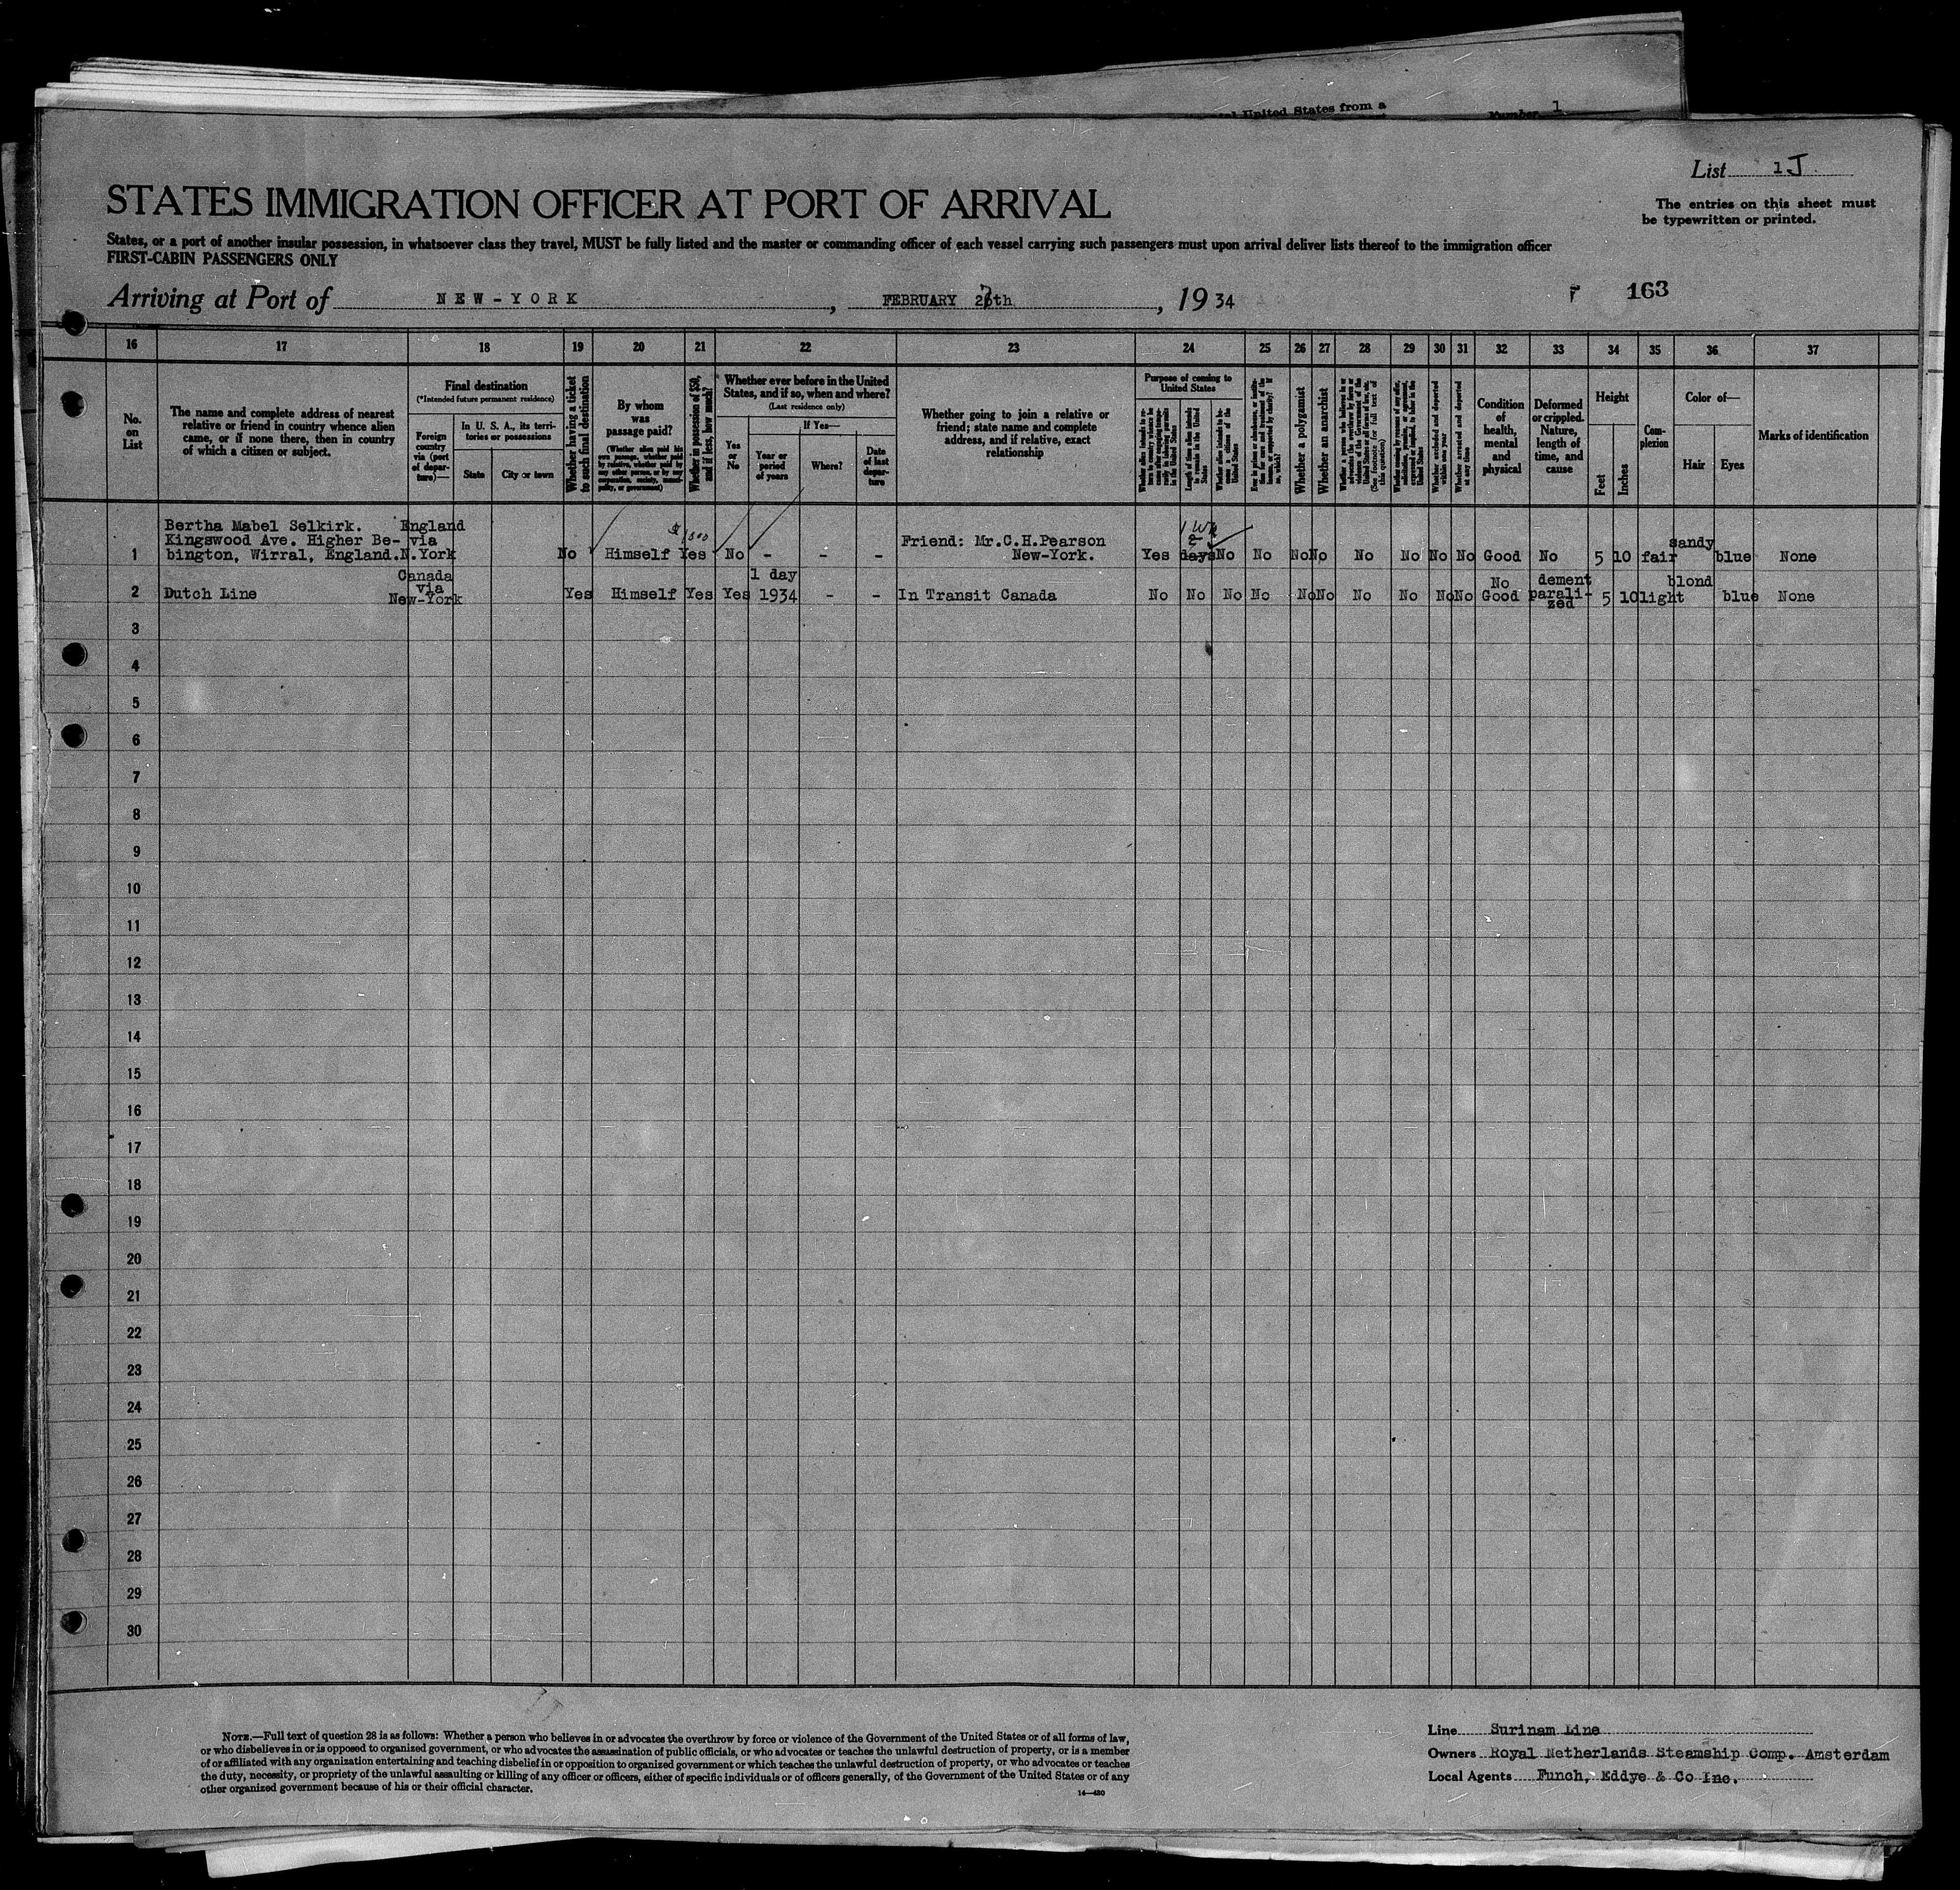 tal United States from a
Number 1
List 1J
The entries on this sheet must
be typewritten or printed.
STATES IMMIGRATION OFFICER AT PORT OF ARRIVAL
States, or a port of another insular possession, in whatsoever class they travel, MUST be fully listed and the master or commanding officer of each vessel carrying such passengers must upon arrival deliver lists thereof to the immigration officer
FIRST-CABIN PASSENGERS ONLY
Arriving at Port of NEW-YORK, FEBRUARY 27th, 1934
163
16 17 18 19 20 21 22 23 24 25 26 27 28 29 30 31 32 33 34 35 36 37
No.
on
List
The name and complete address of nearest
relative or friend in country whence alien
came, or if none there, then in country
of which a citizen or subject.
Final destination
(*Intended future permanent residence)
Foreign
country
via (port
of depar-
ture)—
In U. S. A., its terri-
tories or possessions
State
City or town
Whether having a ticket
to such final destination
By whom
was
passage paid?
(Whether alien paid his
own passage, whether paid
by relative, whether paid by
any other person, or by any
corporation, society, munici-
pality, or government)
Whether in possession of $50,
and if less, how much?
Whether ever before in the United
States, and if so, when and where?
(Last residence only)
Yes
or
No
If Yes—
Year or
period
of years
Where?
Date
of last
depar-
ture
Whether going to join a relative or
friend; state name and complete
address, and if relative, exact
relationship
Purpose of coming to
United States
Length of time alien intends
to remain in the United
States
Whether alien intends to be-
come a citizen of the
United States
Whether a polygamist
Whether an anarchist
(See footnote for full text of
this question)
Whether excluded and deported
within one year
Whether arrested and deported
at any time
Condition
of
health,
mental
and
physical
Deformed
or crippled.
Nature,
length of
time, and
cause
Height
Feet
Inches
Com-
plexion
Color of—
Hair
Eyes
Marks of identification
Bertha Mabel Selkirk. England
Kingswood Ave. Higher Be- via
1 bington, Wirral, England. N.York No Himself $1000 Yes No - - -
Friend: Mr.C.H.Pearson
New-York.
1 wk
2
Yes days No No No No No No No No Good No 5 10 fair sandy blue None
Canada
via
2 Dutch Line New-York Yes Himself Yes Yes 1 day
1934 - - In Transit Canada No No No No No No No No No No No
Good dement
parali-
zed 5 10 light blond blue None
3
4
5
6
7
8
9
10
11
12
13
14
15
16
17
18
19
20
21
22
23
24
25
26
27
28
29
30
NOTE.—Full text of question 28 is as follows: Whether a person who believes in or advocates the overthrow by force or violence of the Government of the United States or of all forms of law,
or who disbelieves in or is opposed to organized government, or who advocates the assassination of public officials, or who advocates or teaches the unlawful destruction of property, or is a member
of or affiliated with any organization entertaining and teaching disbelief in or opposition to organized government or which teaches the unlawful destruction of property, or who advocates or teaches
the duty, necessity, or propriety of the unlawful assaulting or killing of any officer or officers, either of specific individuals or of officers generally, of the Government of the United States or of any
other organized government because of his or their official character.
14—480
Line Surinam Line
Owners Royal Netherlands Steamship Comp. Amsterdam
Local Agents Funch, Eddye & Co Inc.